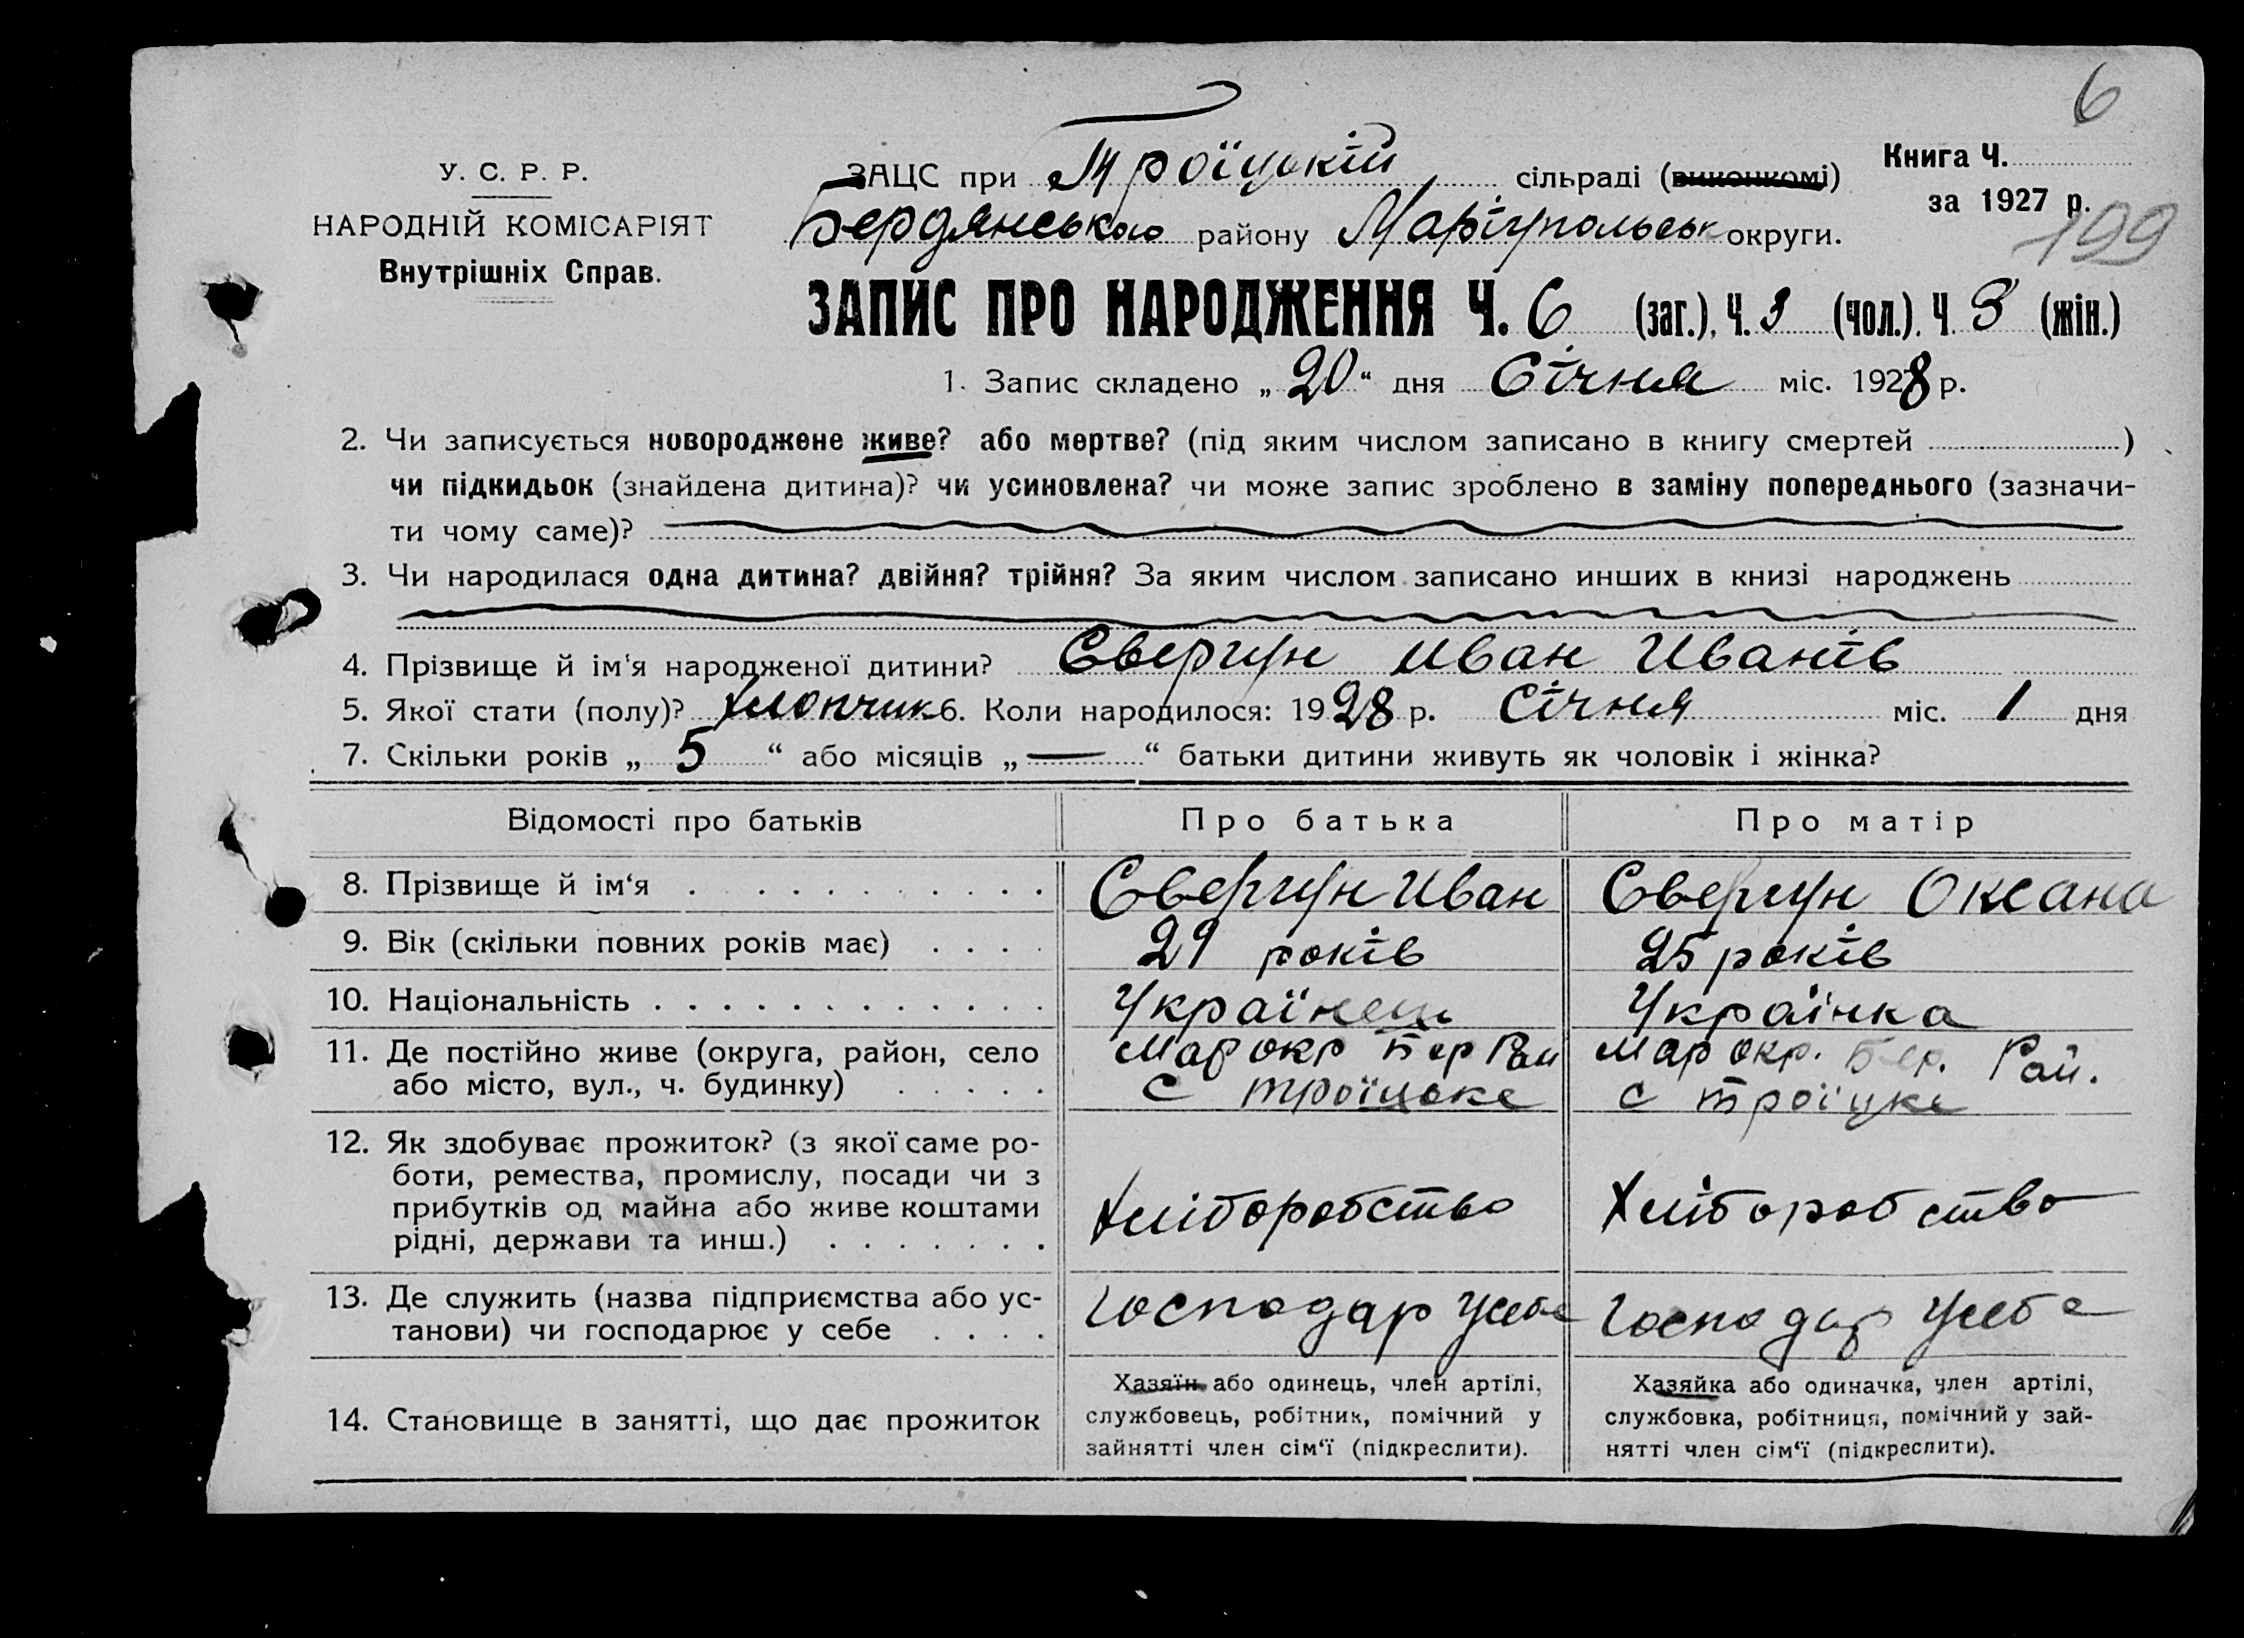 6
У. С. Р. Р.
НАРОДНІЙ КОМІСАРІЯТ
Внутрішніх Справ.
ЗАЦС при Троїцькій сільраді (виконкомі)
Бердянського району Маріупольськ округи.
Книга Ч.
за 1927 р.
199
ЗАПИС ПРО НАРОДЖЕННЯ Ч. 6 (заг.), Ч. 3 (чол.). Ч 3 (жін.)
1. Запис складено „ 20 “ дня Січня міс. 1928 р.
2. Чи записується новороджене живе? або мертве? (під яким числом записано в книгу смертей )
чи підкидьок (знайдена дитина)? чи усиновлена? чи може запис зроблено в заміну попереднього (зазначи-
ти чому саме)?
3. Чи народилася одна дитина? двійня? трійня? За яким числом записано инших в книзі народжень
4. Прізвище й ім'я народженої дитини? Свергун Иван Иванів
5. Якої стати (полу)? Хлопчик 6. Коли народилося: 1928 р. Січня міс. 1 дня
7. Скільки років „ 5 “ або місяців „ — “ батьки дитини живуть як чоловік і жінка?
Відомості про батьків Про батька Про матір
8. Прізвище й ім‘я Свергун Иван Свергун Оксана
9. Вік (скільки повних років має) 29 років 25 років
10. Національність Українець Українка
11. Де постійно живе (округа, район, село Мар окр Бер Рай Мар окр. Бер. Рай.
або місто, вул., ч. будинку) с Троїцьке с Троїцке
12. Як здобуває прожиток? (з якої саме ро-
боти, ремества, промислу, посади чи з
прибутків од майна або живе коштами Хліборобство Хліборобство
рідні, держави та инш.)
13. Де служить (назва підприємства або ус- Господар усебе Господар усебе
танови) чи господарює у себе
14. Становище в занятті, що дає прожиток
Хазяїн або одинець, член артілі,
службовець, робітник, помічний у
зайнятті член сім‘ї (підкреслити).
Хазяйка або одиначка, член артілі,
службовка, робітниця, помічний у зай-
нятті член сім‘ї (підкреслити).